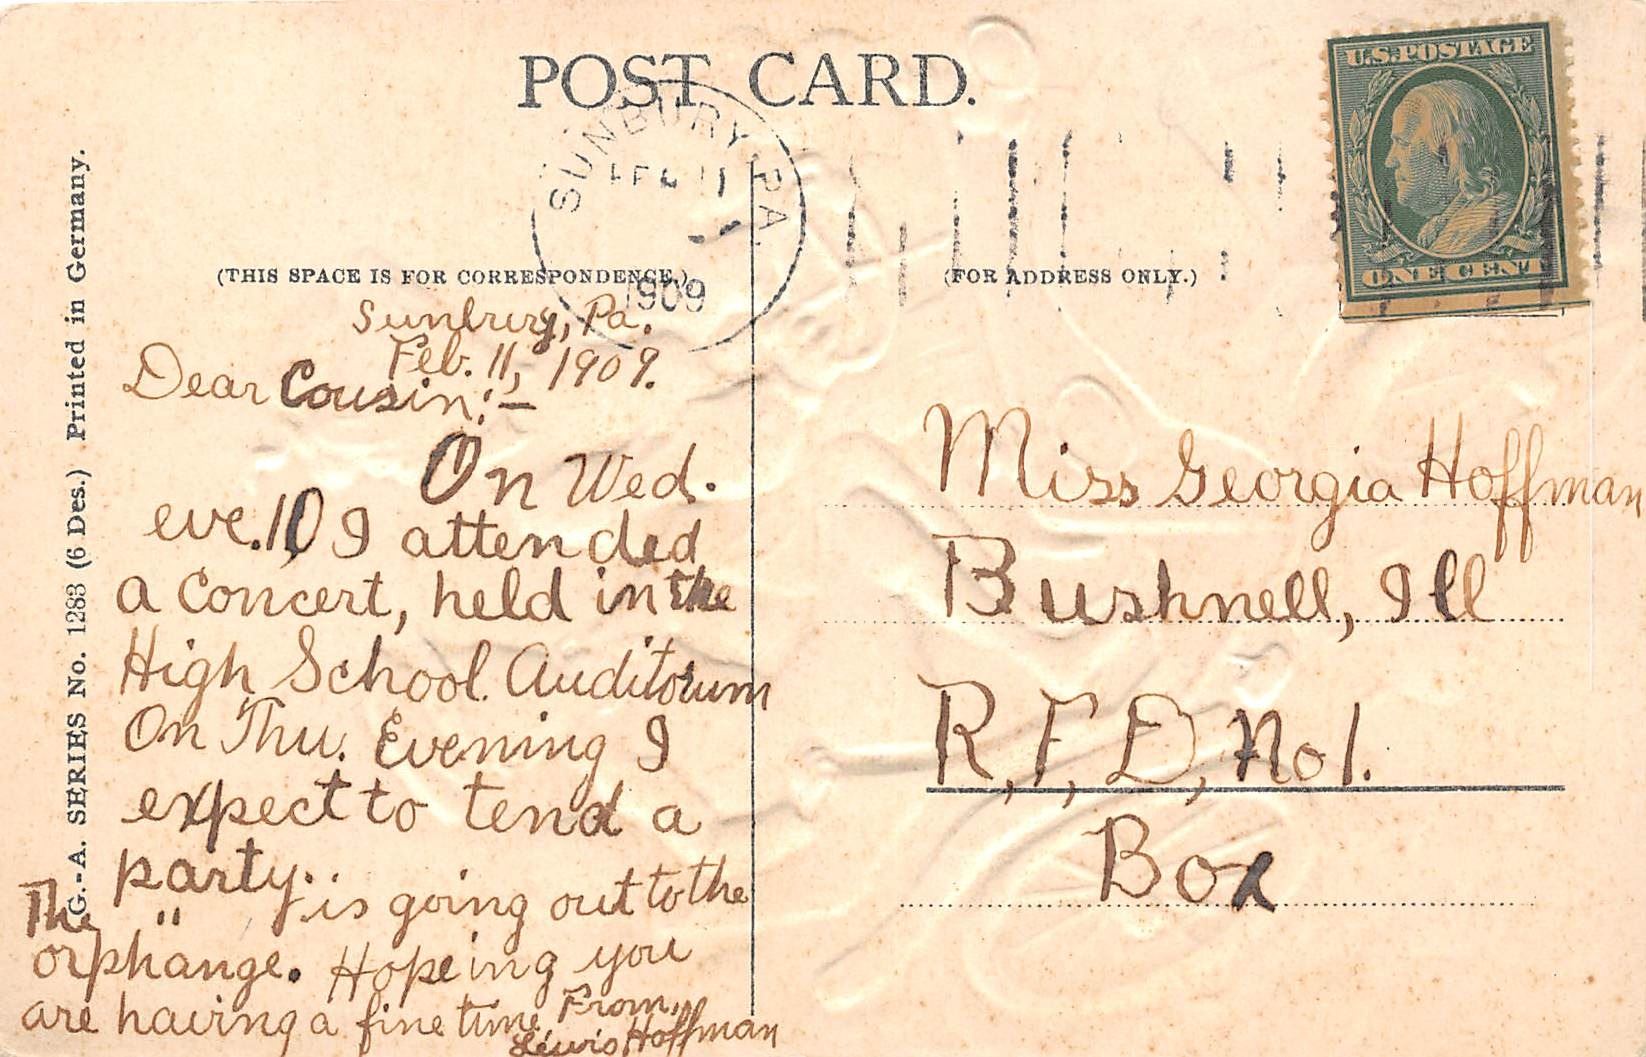 POST CARD.
U.S. POSTAGE
ONE CENT
SUNBURY, PA.
FEB 11
1909
(THIS SPACE IS FOR CORRESPONDENCE.)
(FOR ADDRESS ONLY.)
G.-A. SERIES No. 1283 (6 Des.) Printed in Germany.
Sunbury, Pa.
Feb. 11, 1909.
Dear Cousin:-
On Wed.
eve. 10 I attended
a Concert, held in the
High School Auditorum
On Thu. Evening I
expect to tend a
party.
The " is going out to the
orphange. Hopeing you
are having a fine time
From,
Lewis Hoffman
Miss Georgia Hoffman
Bushnell, Ill
R, F, D, No 1.
Box